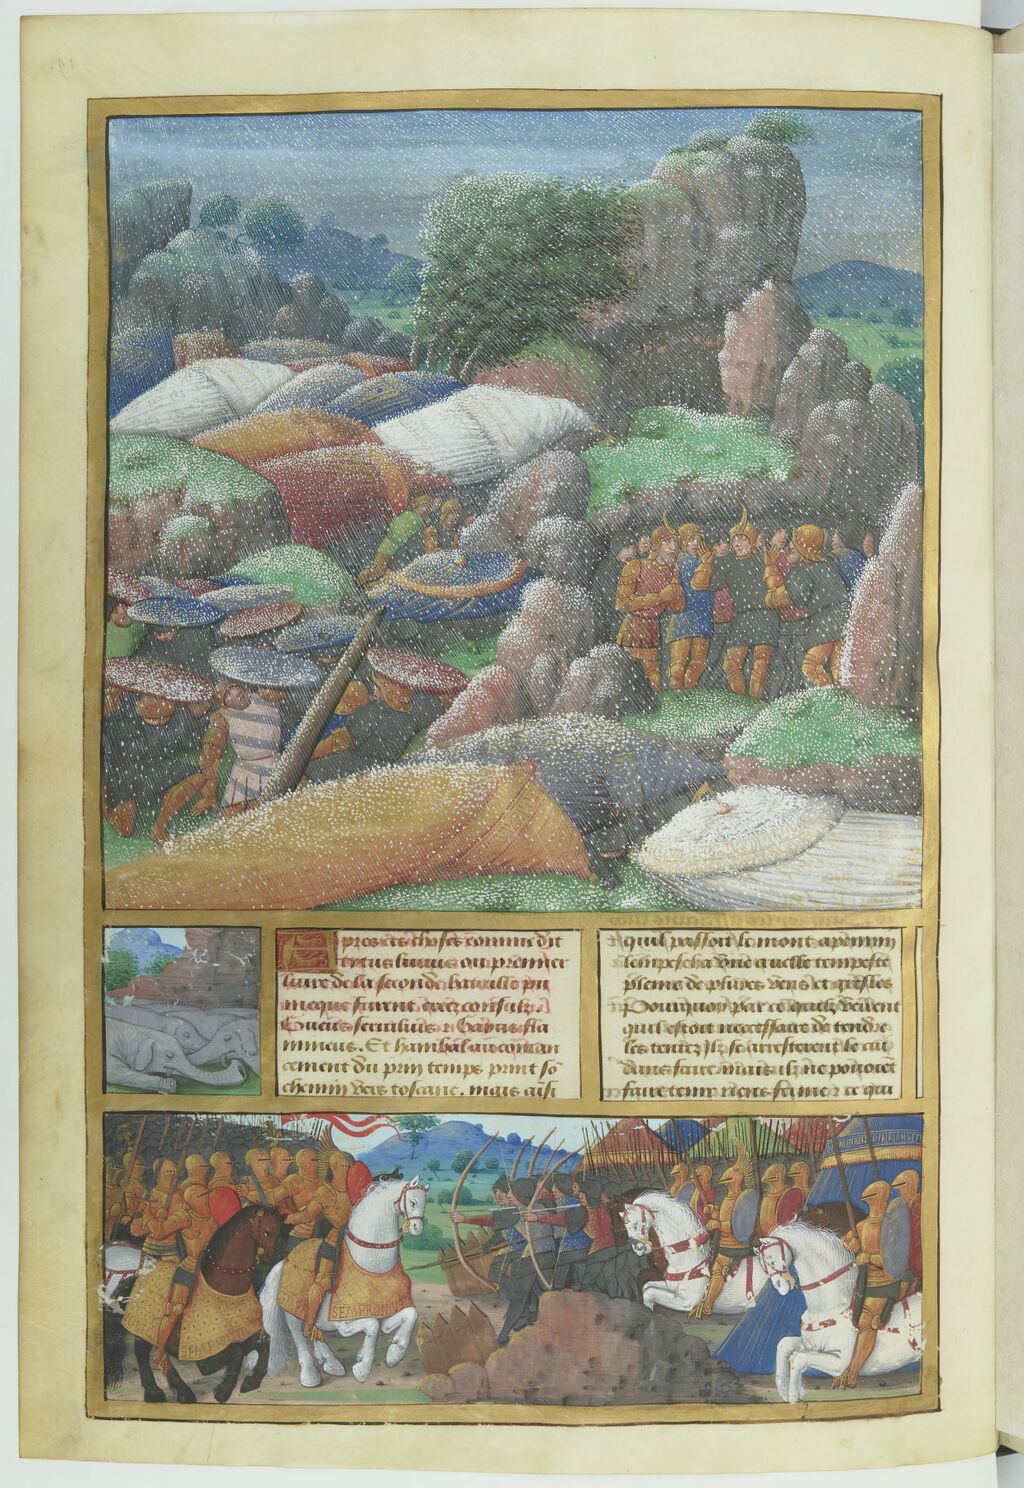 Apres ces choses comme dit
titus livius ou premier
livre de la seconde bataille pu
nicque furent creez consulz
Gneus servilius Gayus fla
minieus. Et hambal au comman
cement du prin temps print so
chemin vers toscane. mais aisi
quil passoit le mont apennin
lempescha une quelle tempeste
pleine de pluyes vens et gresles
Pourquoy par ce quilz veirent
quil estoit necessaire de tendre
les tentes ilz se arresterent le cui
dans faire mais ilz ne povoiet
faire tenir riens ferme ce qui
SEMPRONIUS
SEMP